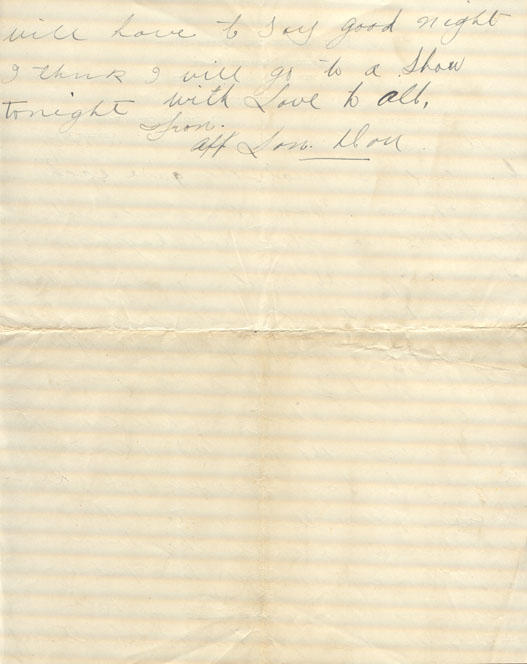 will have to say good night
I think I will go to a Show
tonight with Love to all,
from.
aff Son. Don